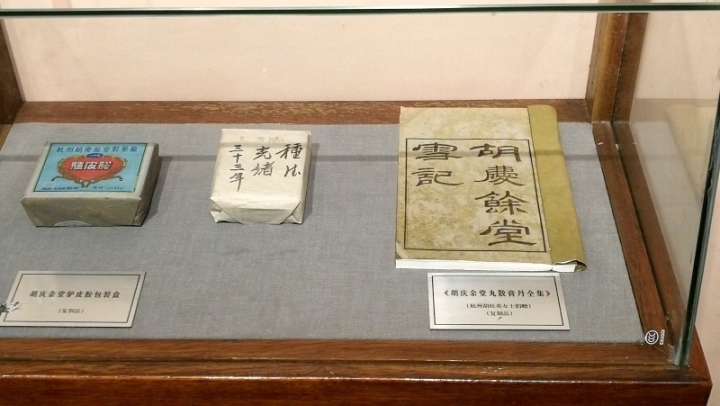 杭州胡慶餘堂製藥廠
驢皮膠
種法
光緒
三十三年
胡慶餘堂
雪記
胡庆余堂驴皮胶包装盒
（复制品）
《胡庆余堂丸散膏丹全集》
（复制品）